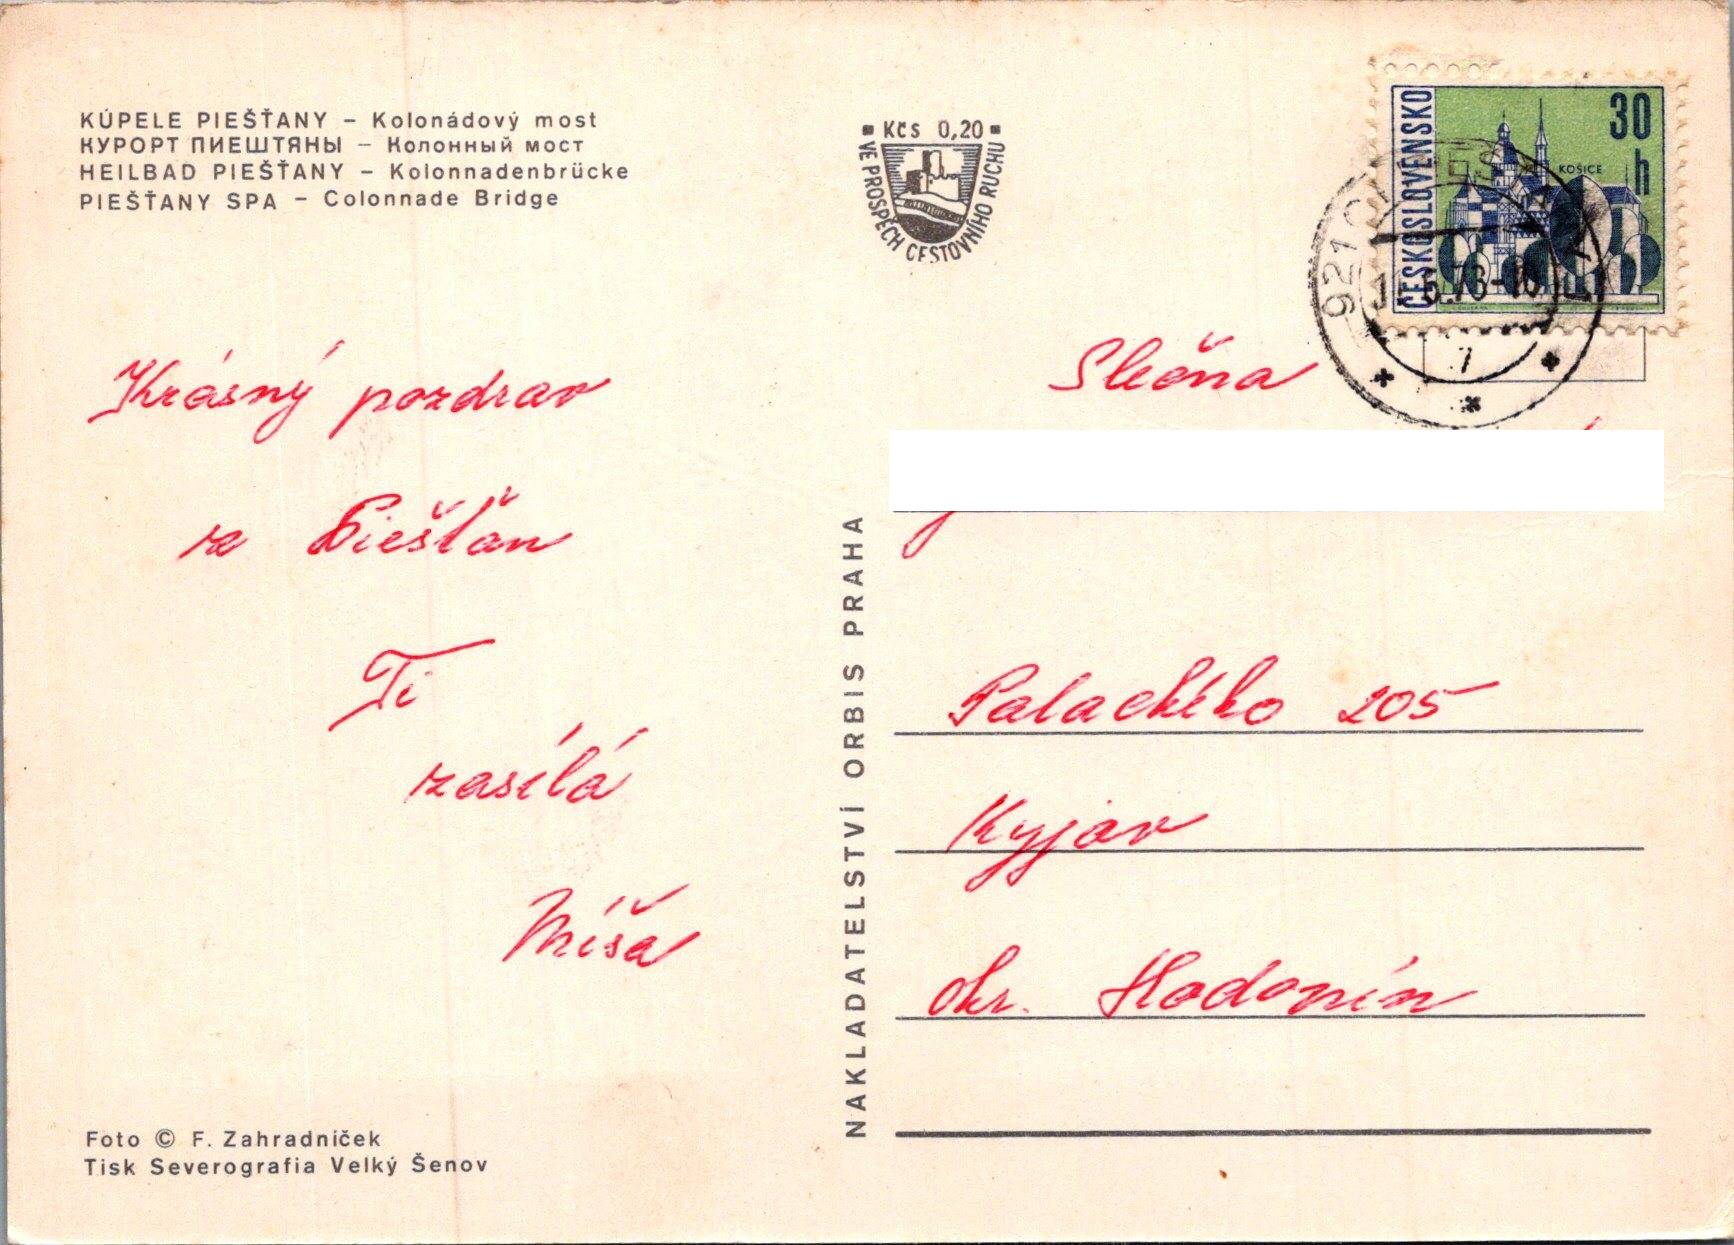 KÚPELE PIEŠŤANY – Kolonádový most
КУРОРТ ПИЕШТЯНЫ – Колонный мост
HEILBAD PIEŠŤANY – Kolonnadenbrücke
PIEŠŤANY SPA – Colonnade Bridge
Kčs 0,20
VE PROSPĚCH CESTOVNÍHO RUCHU
ČESKOSLOVENSKO
30
h
KOŠICE
921 01
7
Krásný pozdrav
z Piešťan
Ti
zasílá
Míša
NAKLADATELSTVÍ ORBIS PRAHA
Slečna
Palackého 205
Kyjov
okr. Hodonín
Foto © F. Zahradníček
Tisk Severografia Velký Šenov